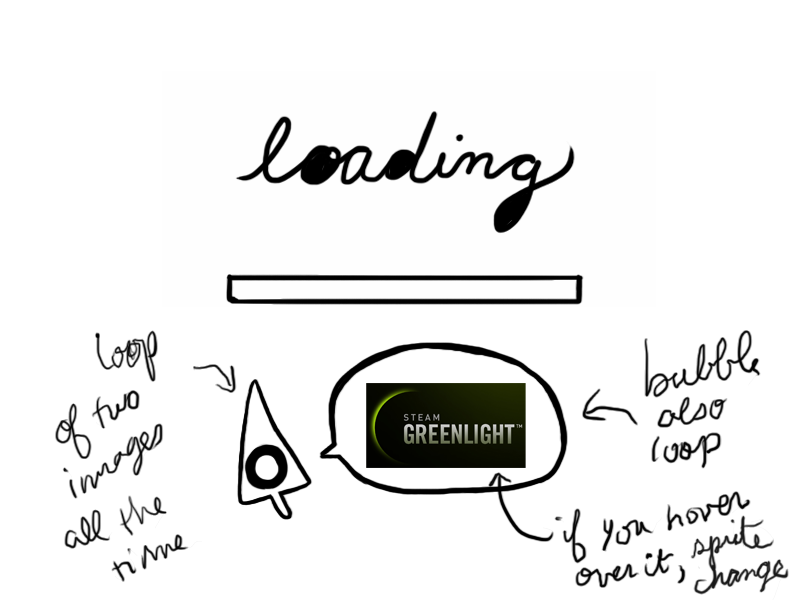 loading
loop
of two
images
all the
time
STEAM
GREENLIGHT™
bubble
also
loop
if you hover
over it, sprite
change